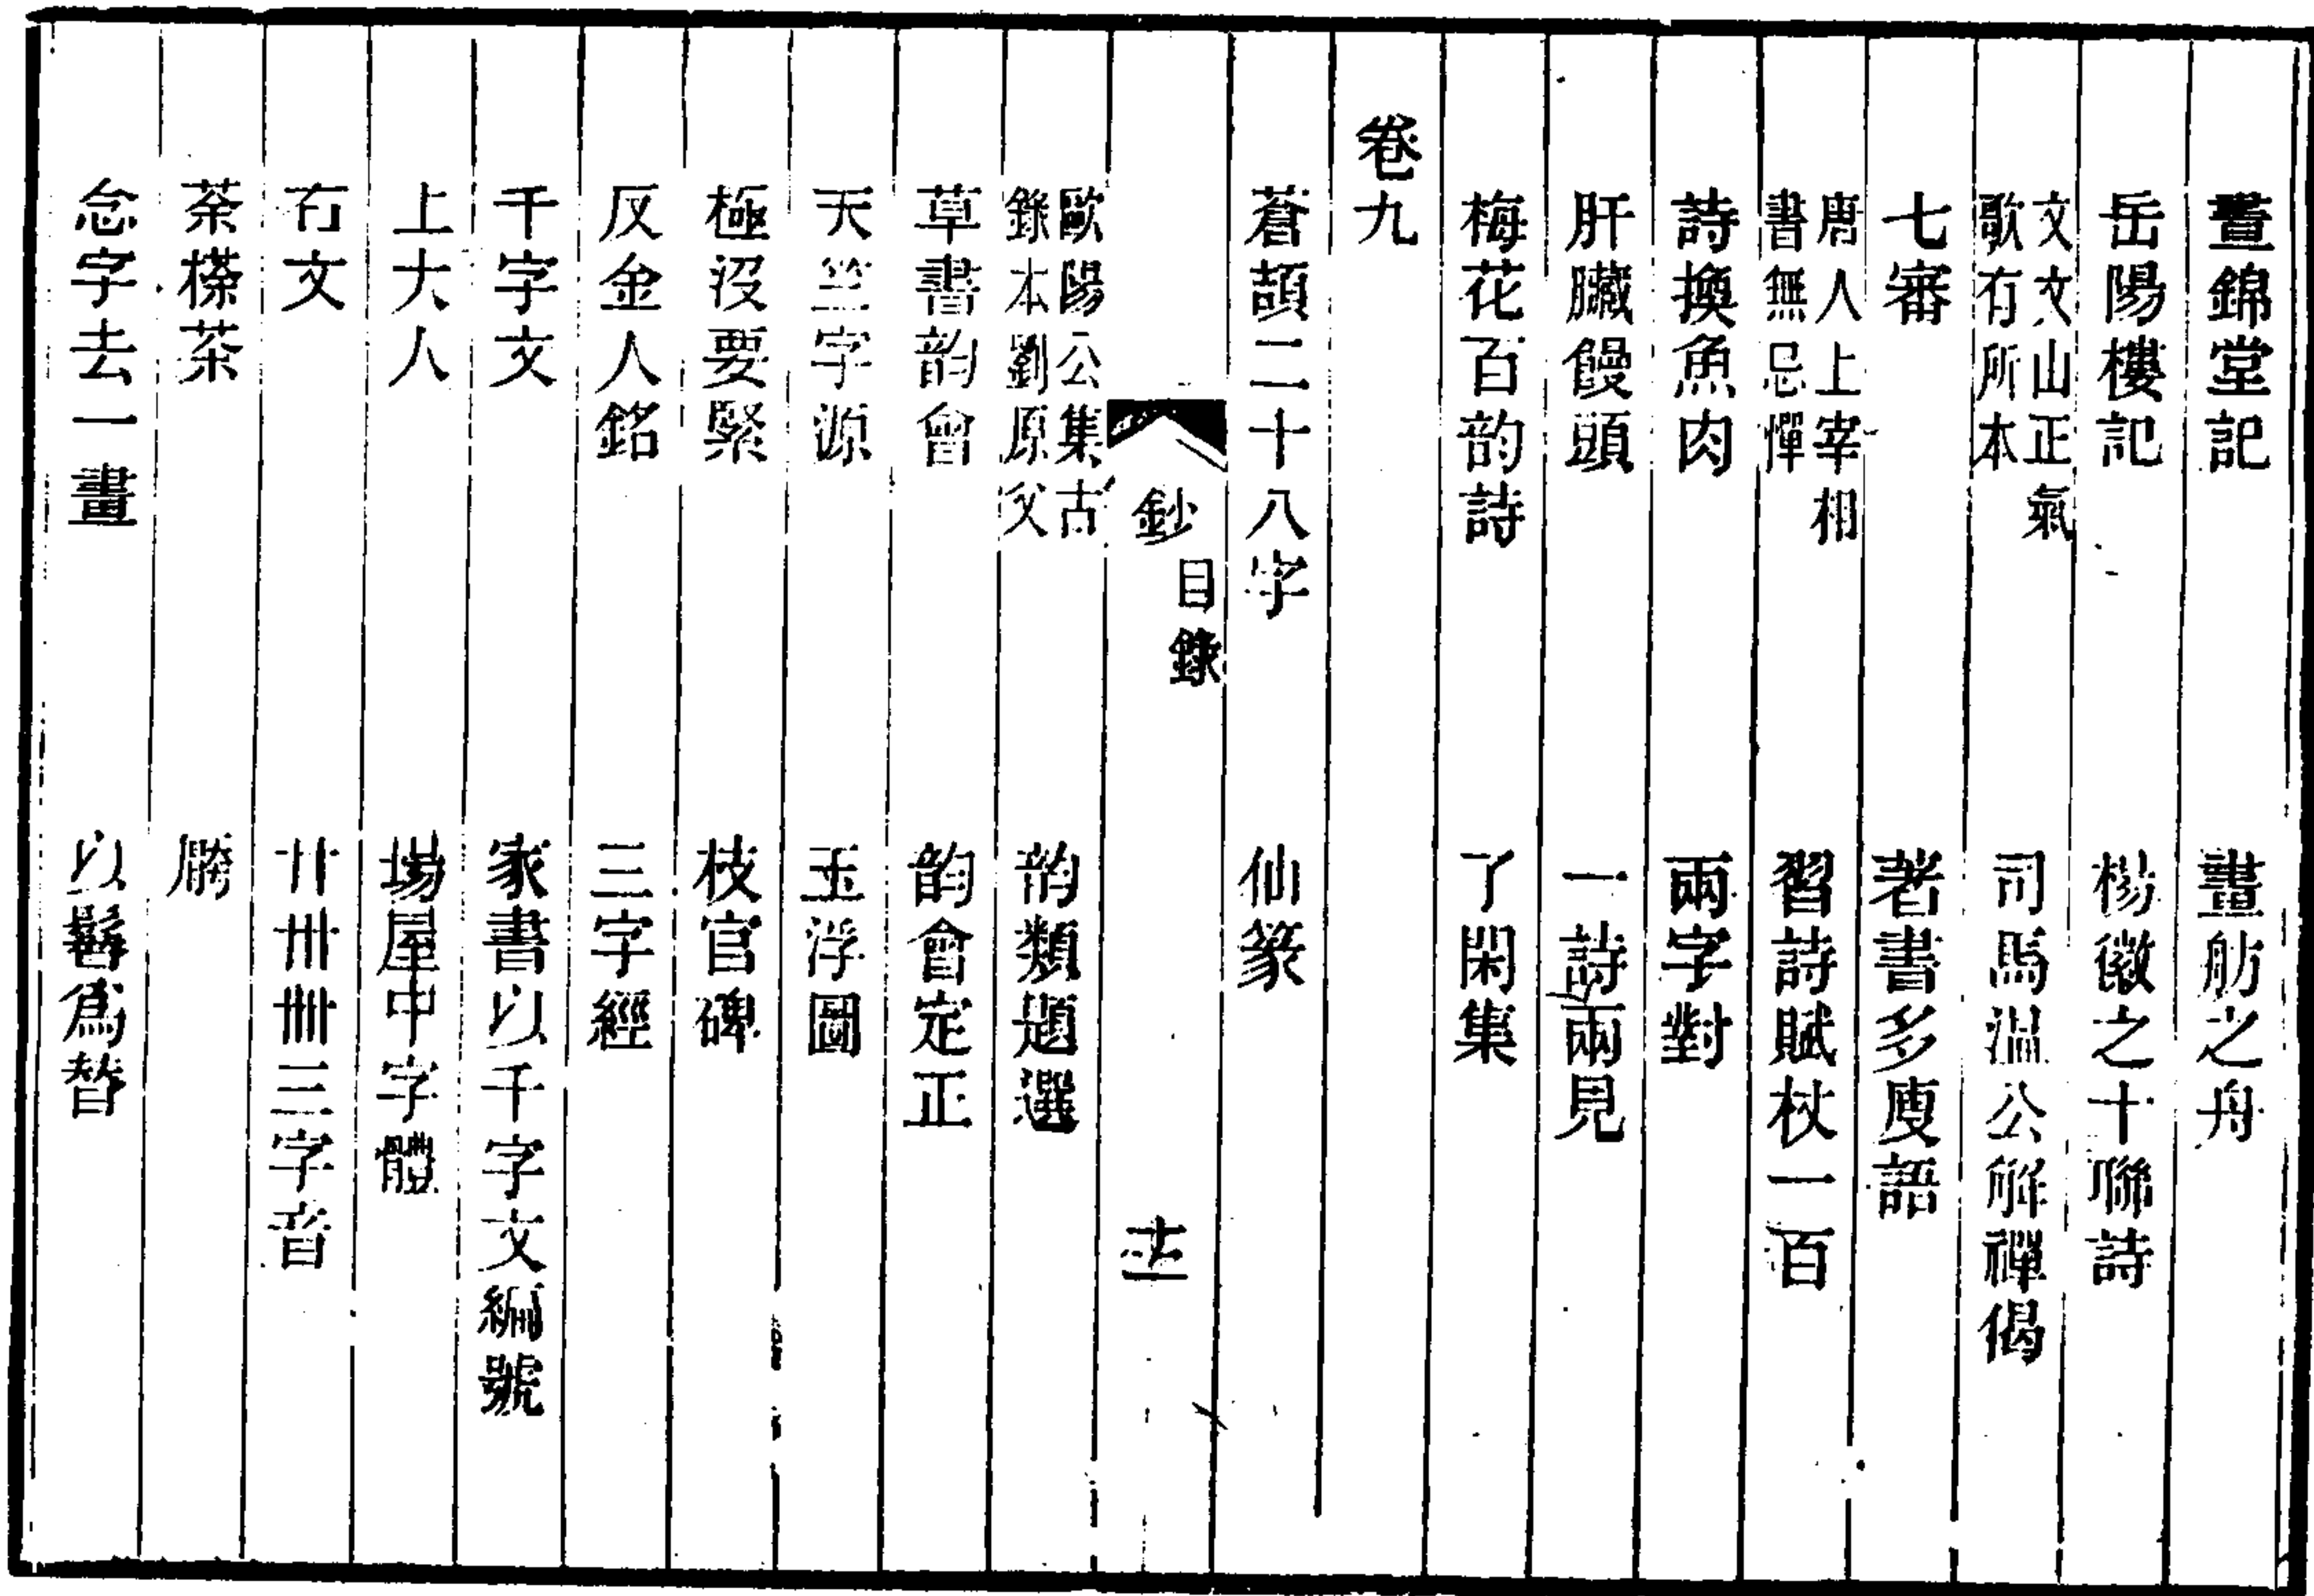 晝錦堂記　畫舫之舟
岳陽樓記　楊徽之十聯詩
文文山正氣歌有所本　司馬溫公解禪偈
七審　著書多廋語
唐人上宰相書無忌憚　習詩賦杖一百
詩換魚肉　兩字對
肝臟饅頭　一詩兩見
梅花百韵詩　了閑集
卷九
蒼頡二十八字　仙篆
鈔　目錄　十二
歐陽公集古錄本劉原父　韵類題選
草書韵會　韵會定正
天竺字源　玉浮圖
極沒要緊　枝官碑
反金人銘　三字經
千字文　家書以千字文編號
上大人　場屋中字體
右文　廿卅卌三字音
荼㯶茶　勝
念字去一畫　以鬠爲督